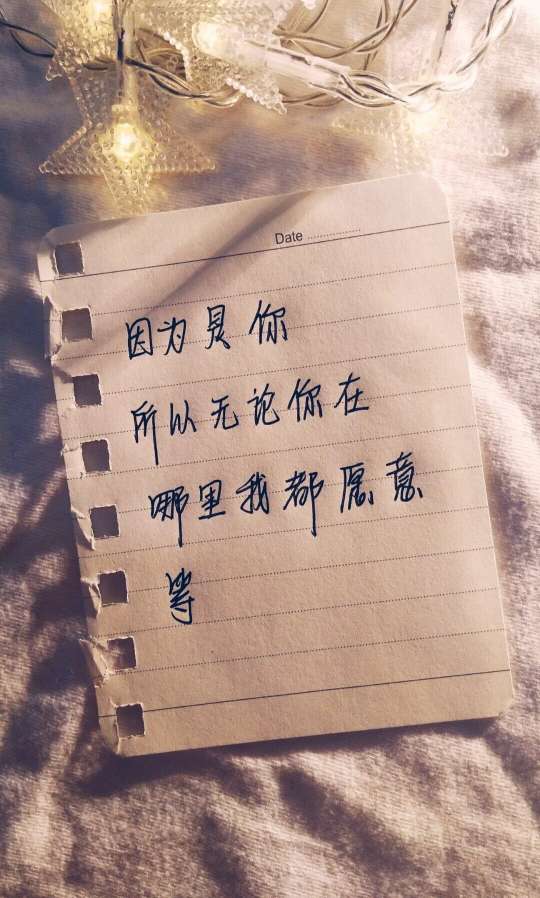 Date
因为是你
所以无论你在
哪里我都愿意
等